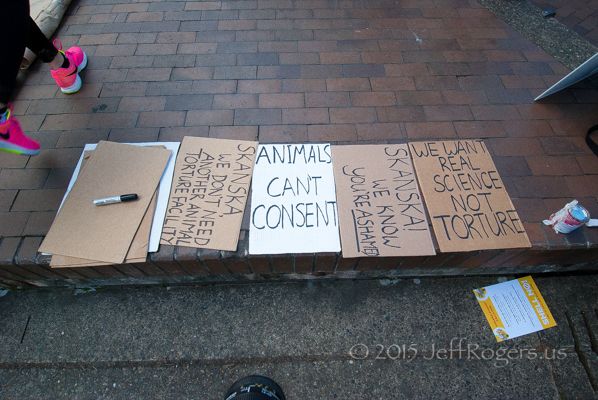 SKANSKA,
WE DON'T NEED
ANOTHER ANIMAL
TORTURE FACILITY
ANIMALS
CANT
CONSENT
SKANSKA!
WE KNOW
YOU'RE ASHAMED
WE WANT
REAL
SCIENCE
NOT
TORTURE
© 2015 JeffRogers.us